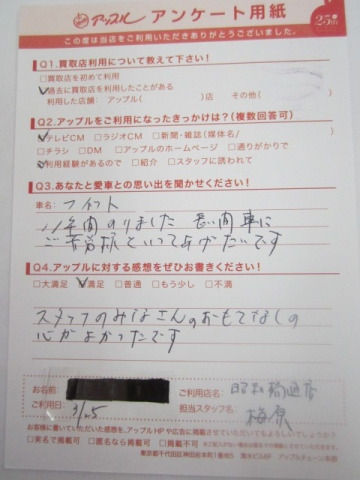 アップル アンケート用紙 25th
この度は当店をご利用いただきありがとうございました。
Q1.買取店利用について教えて下さい!
□買取店を初めて利用
□過去に買取店を利用したことがある
利用した店舗: アップル( )店 その他( )
Q2.アップルをご利用になったきっかけは?(複数回答可)
□テレビCM □ラジオCM □新聞・雑誌(媒体名/ )
□チラシ □DM □アップルのホームページ □通りがかりで
□利用経験があるので □紹介 □スタッフに誘われて
Q3.あなたと愛車との思い出を聞かせください!
車名: フィット
11年間のりました 長い間車に
ご苦労様といってあげたいです
Q4.アップルに対する感想をぜひお書きください!
□大満足 □満足 □普通 □もう少し □不満
スタッフのみなさんのおもてなしの
心がよかったです
お名前: ご利用店名: 昭和橋通店
ご利用日: 3/25 担当スタッフ名: 梅原
お客様に書いていただいた感想を、アップルHPや広告に掲載させていただいてもよろしいでしょうか?
□実名で掲載可 □匿名なら掲載可 □掲載不可
東京都千代田区神田岩本町1番地5 清水ビル8F アップルチェーン本部